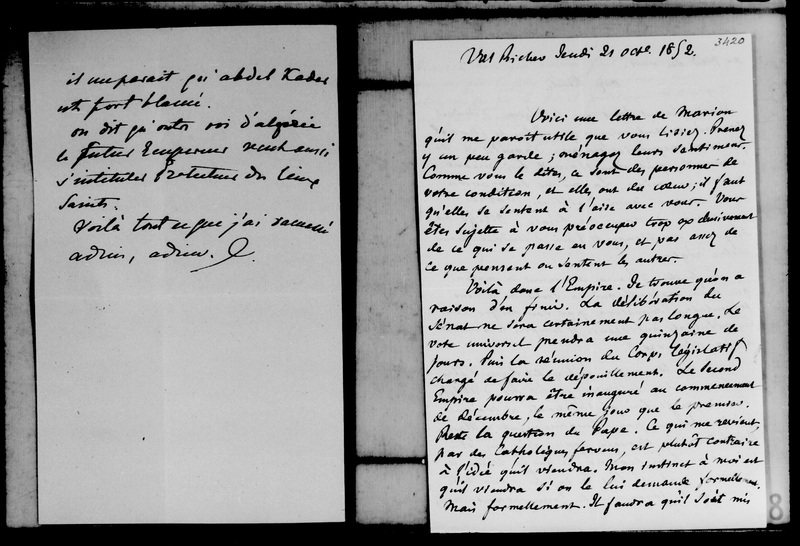 il me parait qu'abdel Kader
est fort blamé.
on dit qu'outre roi d'algérie
le futur Empereur veut aussi
s'instituter Protecteur des lieux
Saints.
Voilà tout ce que j'ai ramassé
adieu, adieu.
3420
Val Richer Jeudi 21 octe 1852.
Voici une lettre de Marion
qu'il me paroit utile que vous lisiez. Prenez
y un peu garde ; ménagez leurs sentimens.
Comme vous le dites, ce sont des personnes de
votre condition, et elles ont du cœur ; il faut
qu'elles se sentent à l'aise avec vous. Vous
êtes sujette à vous préoccuper trop exclusivement
de ce qui se passe en vous, et pas assez de
ce que pensent ou sentent les autres.
Voilà donc l'Empire. Je trouve qu'on a
raison d'en finir. La délibération du
Sénat ne sera certainement pas longue. Le
vote universel prendra une quinzaine de
jours. Puis la réunion du Corps législatif
chargé de faire le dépouillement. Le Second
Empire pourra être inauguré au commencement
de Décembre, le même jour que le premier.
Reste la question du Pape. Ce qui me revient,
par des Catholiques fervens, est plutôt contraire
à l'idée qu'il viendra. Mon instinct à moi est
qu'il viendra si on le lui demande formellement.
Mais formellement. Il faudra qu'il soit mis
8